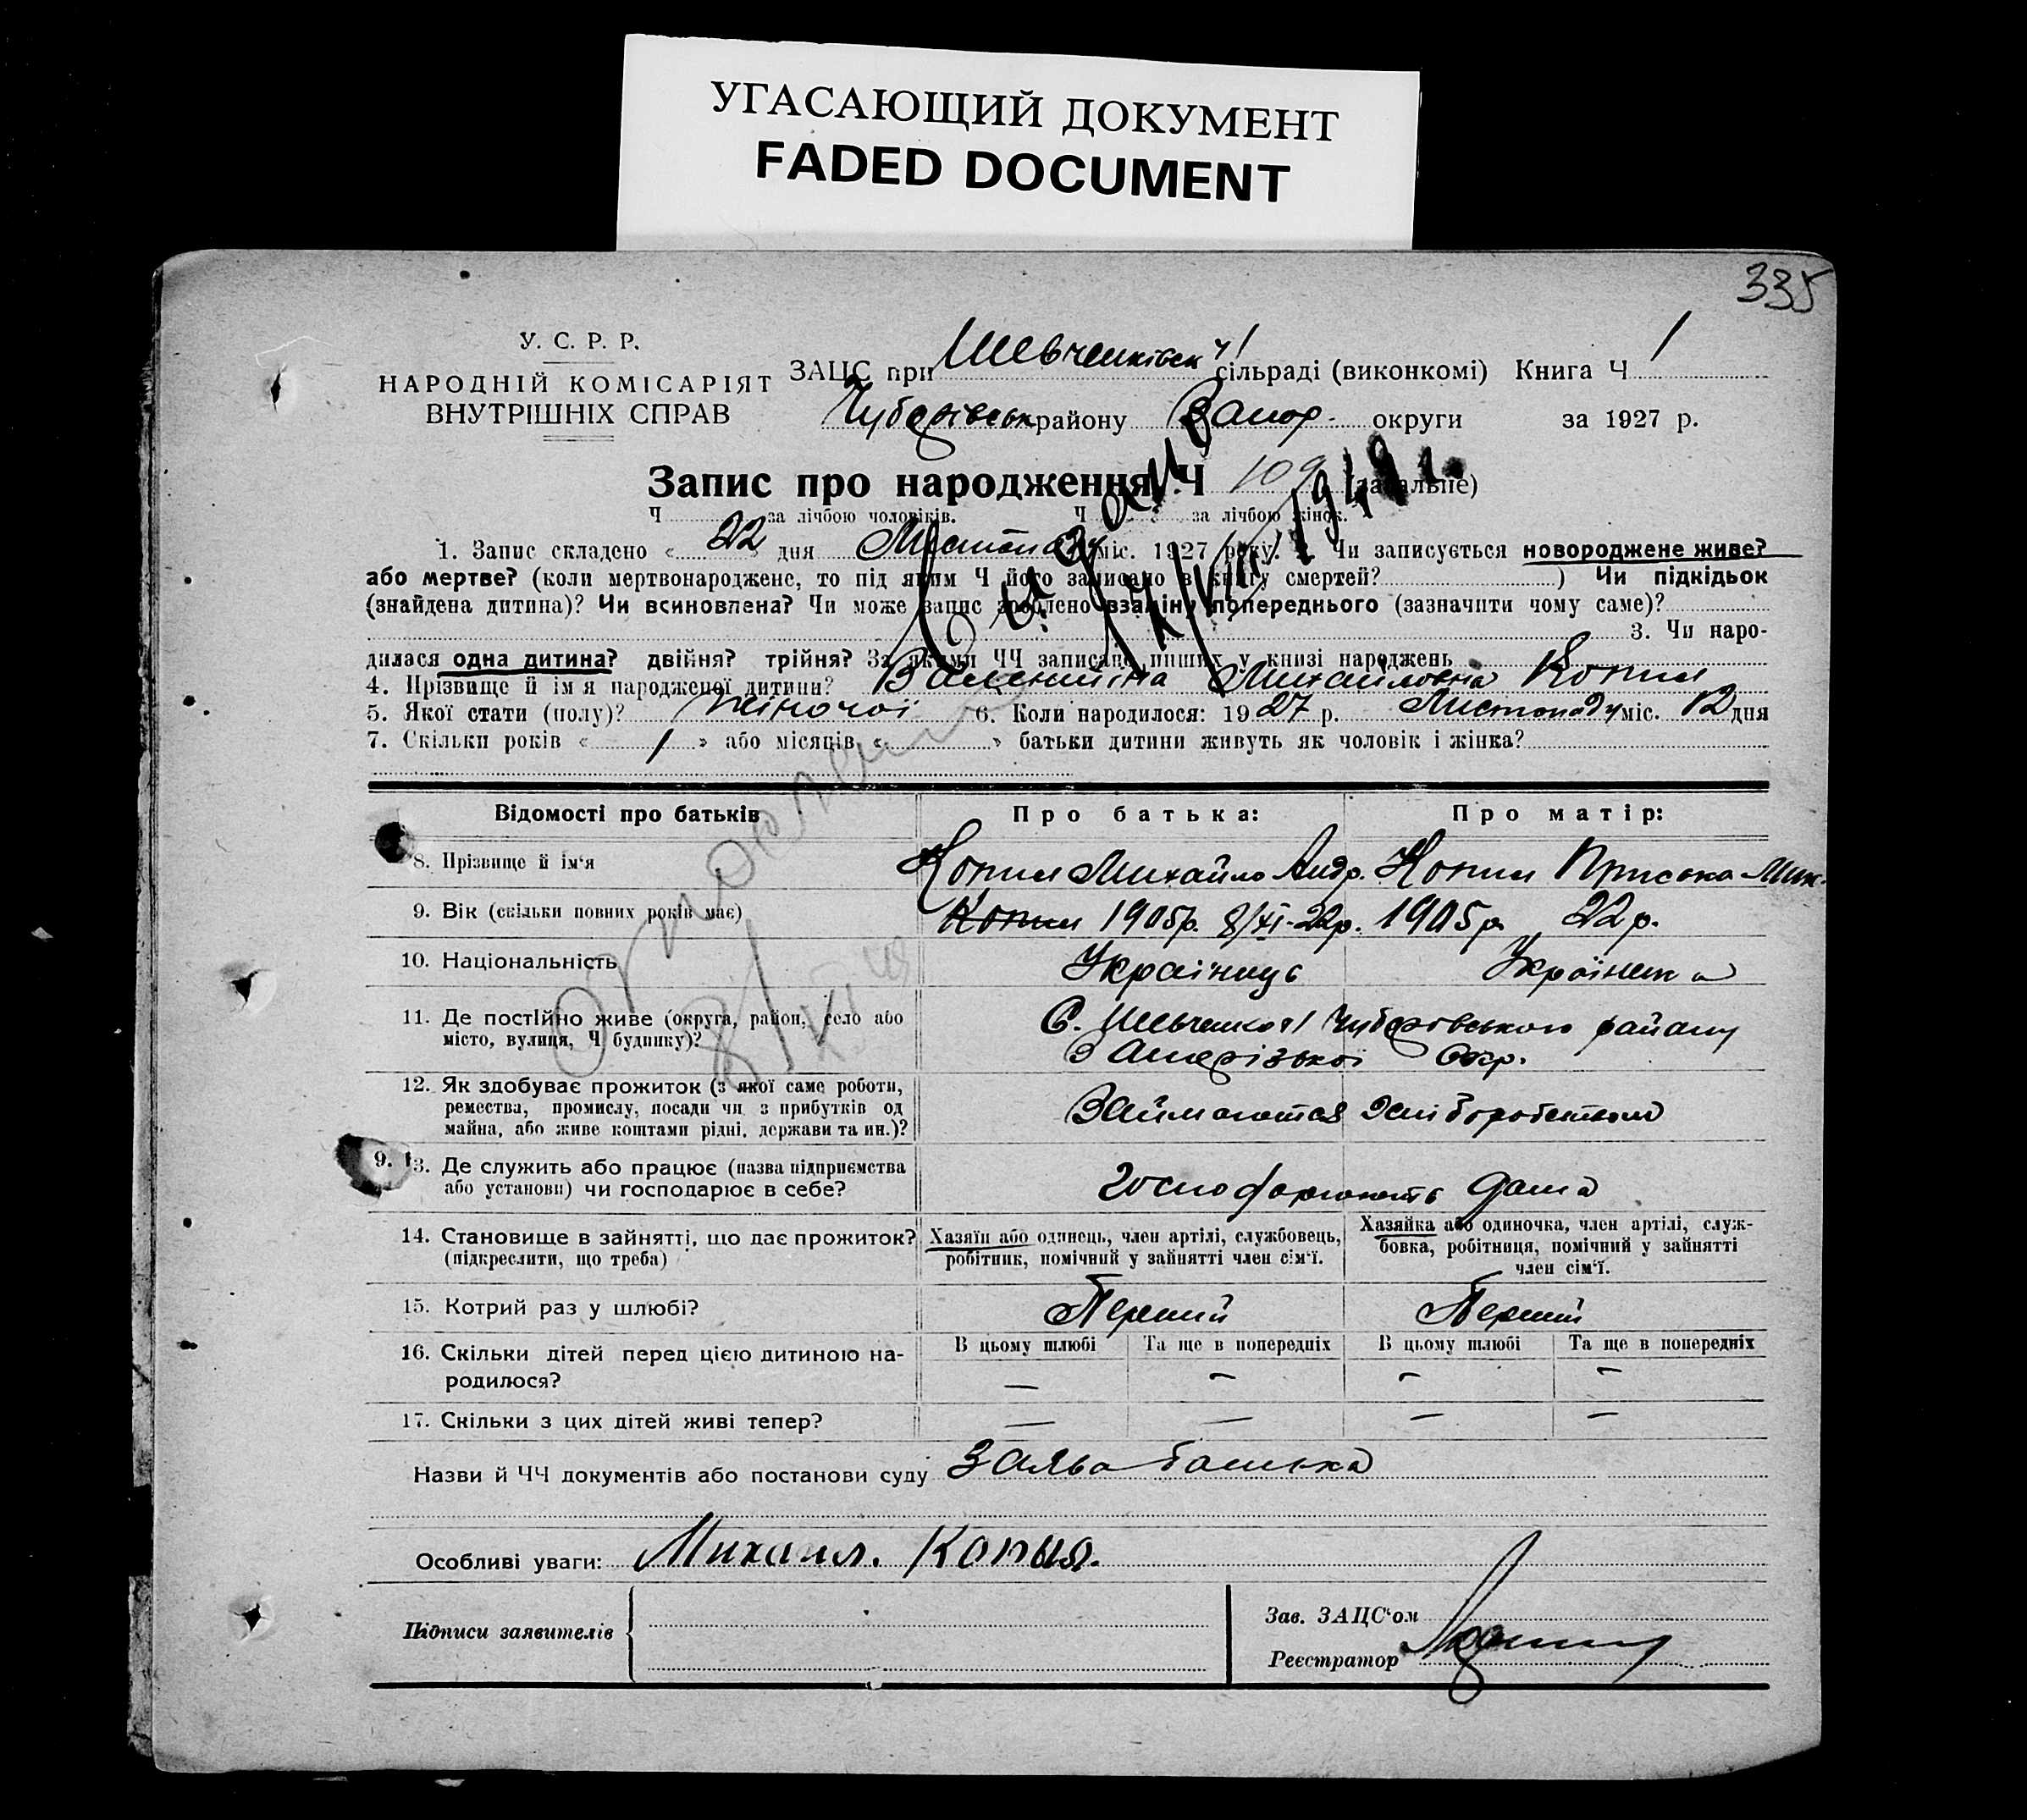 УГАСАЮЩИЙ ДОКУМЕНТ
FADED DOCUMENT
335
У. С. Р. Р.
НАРОДНІЙ КОМІСАРІЯТ
ВНУТРІШНІХ СПРАВ
ЗАЦС при Шевченківск сільраді (виконкомі) Книга Ч 1
Чубарівськ району Запор. округи за 1927 р.
Запис про народження Ч 109 (загальне)
Ч за лічбою чоловіків. Ч за лічбою жінок.
1. Запис складено « 22 » дня Листопаду міс. 1927 року. Чи записується новороджене живе?
або мертве? (коли мертвонароджене, то під яким Ч його записано в книгу смертей? ) Чи підкідьок
(знайдена дитина)? Чи всиновлена? Чи може запис зроблено взамін попереднього (зазначити чому саме)?
3. Чи наро-
дилася одна дитина? двійня? трійня? За якими ЧЧ записано инших у книзі народжень
4. Прізвище й ім'я народженої дитини? Валентіна Михайловна Копил
5. Якої стати (полу)? жіночої 6. Коли народилося: 1927 р. Листопаду міс. 12 дня
7. Скільки років « 1 » або місяців « » батьки дитини живуть як чоловік і жінка?
Відомості про батьків Про батька: Про матір:
8. Прізвище й ім'я Копил Михайло Андр. Копил Приська Мик.
9. Вік (скільки повних років має) Копил 1905р. 8/XI-22р. 1905р 22р.
10. Національність Українець Українка
11. Де постійно живе (округа, район, село або
місто, вулиця, Ч будинку)?
С. Шевченко 1 Чубарівського району
Запорізької Окр.
12. Як здобуває прожиток (з якої саме роботи,
ремества, промислу, посади чи з прибутків од
майна, або живе коштами рідні, держави та ин.)?
Займаються хліборобством
9. 13. Де служить або працює (назва підприємства
або установи) чи господарює в себе?
господарюють дома
14. Становище в зайнятті, що дає прожиток?
(підкреслити, що треба)
Хазяїн або одинець, член артілі, службовець,
робітник, помічний у зайнятті член сім'ї.
Хазяйка або одиночка, член артілі, служ-
бовка, робітниця, помічний у зайнятті
член сім'ї.
15. Котрий раз у шлюбі? Перший Перший
16. Скільки дітей перед цією дитиною на-
родилося?
В цьому шлюбі Та ще в попередніх В цьому шлюбі Та ще в попередніх
— — — —
17. Скільки з цих дітей живі тепер? — — — —
Назви й ЧЧ документів або постанови суду Заява батька
Особливі уваги: Михаил. Копыл.
Підписи заявителів
Зав. ЗАЦС'ом
Реєстратор